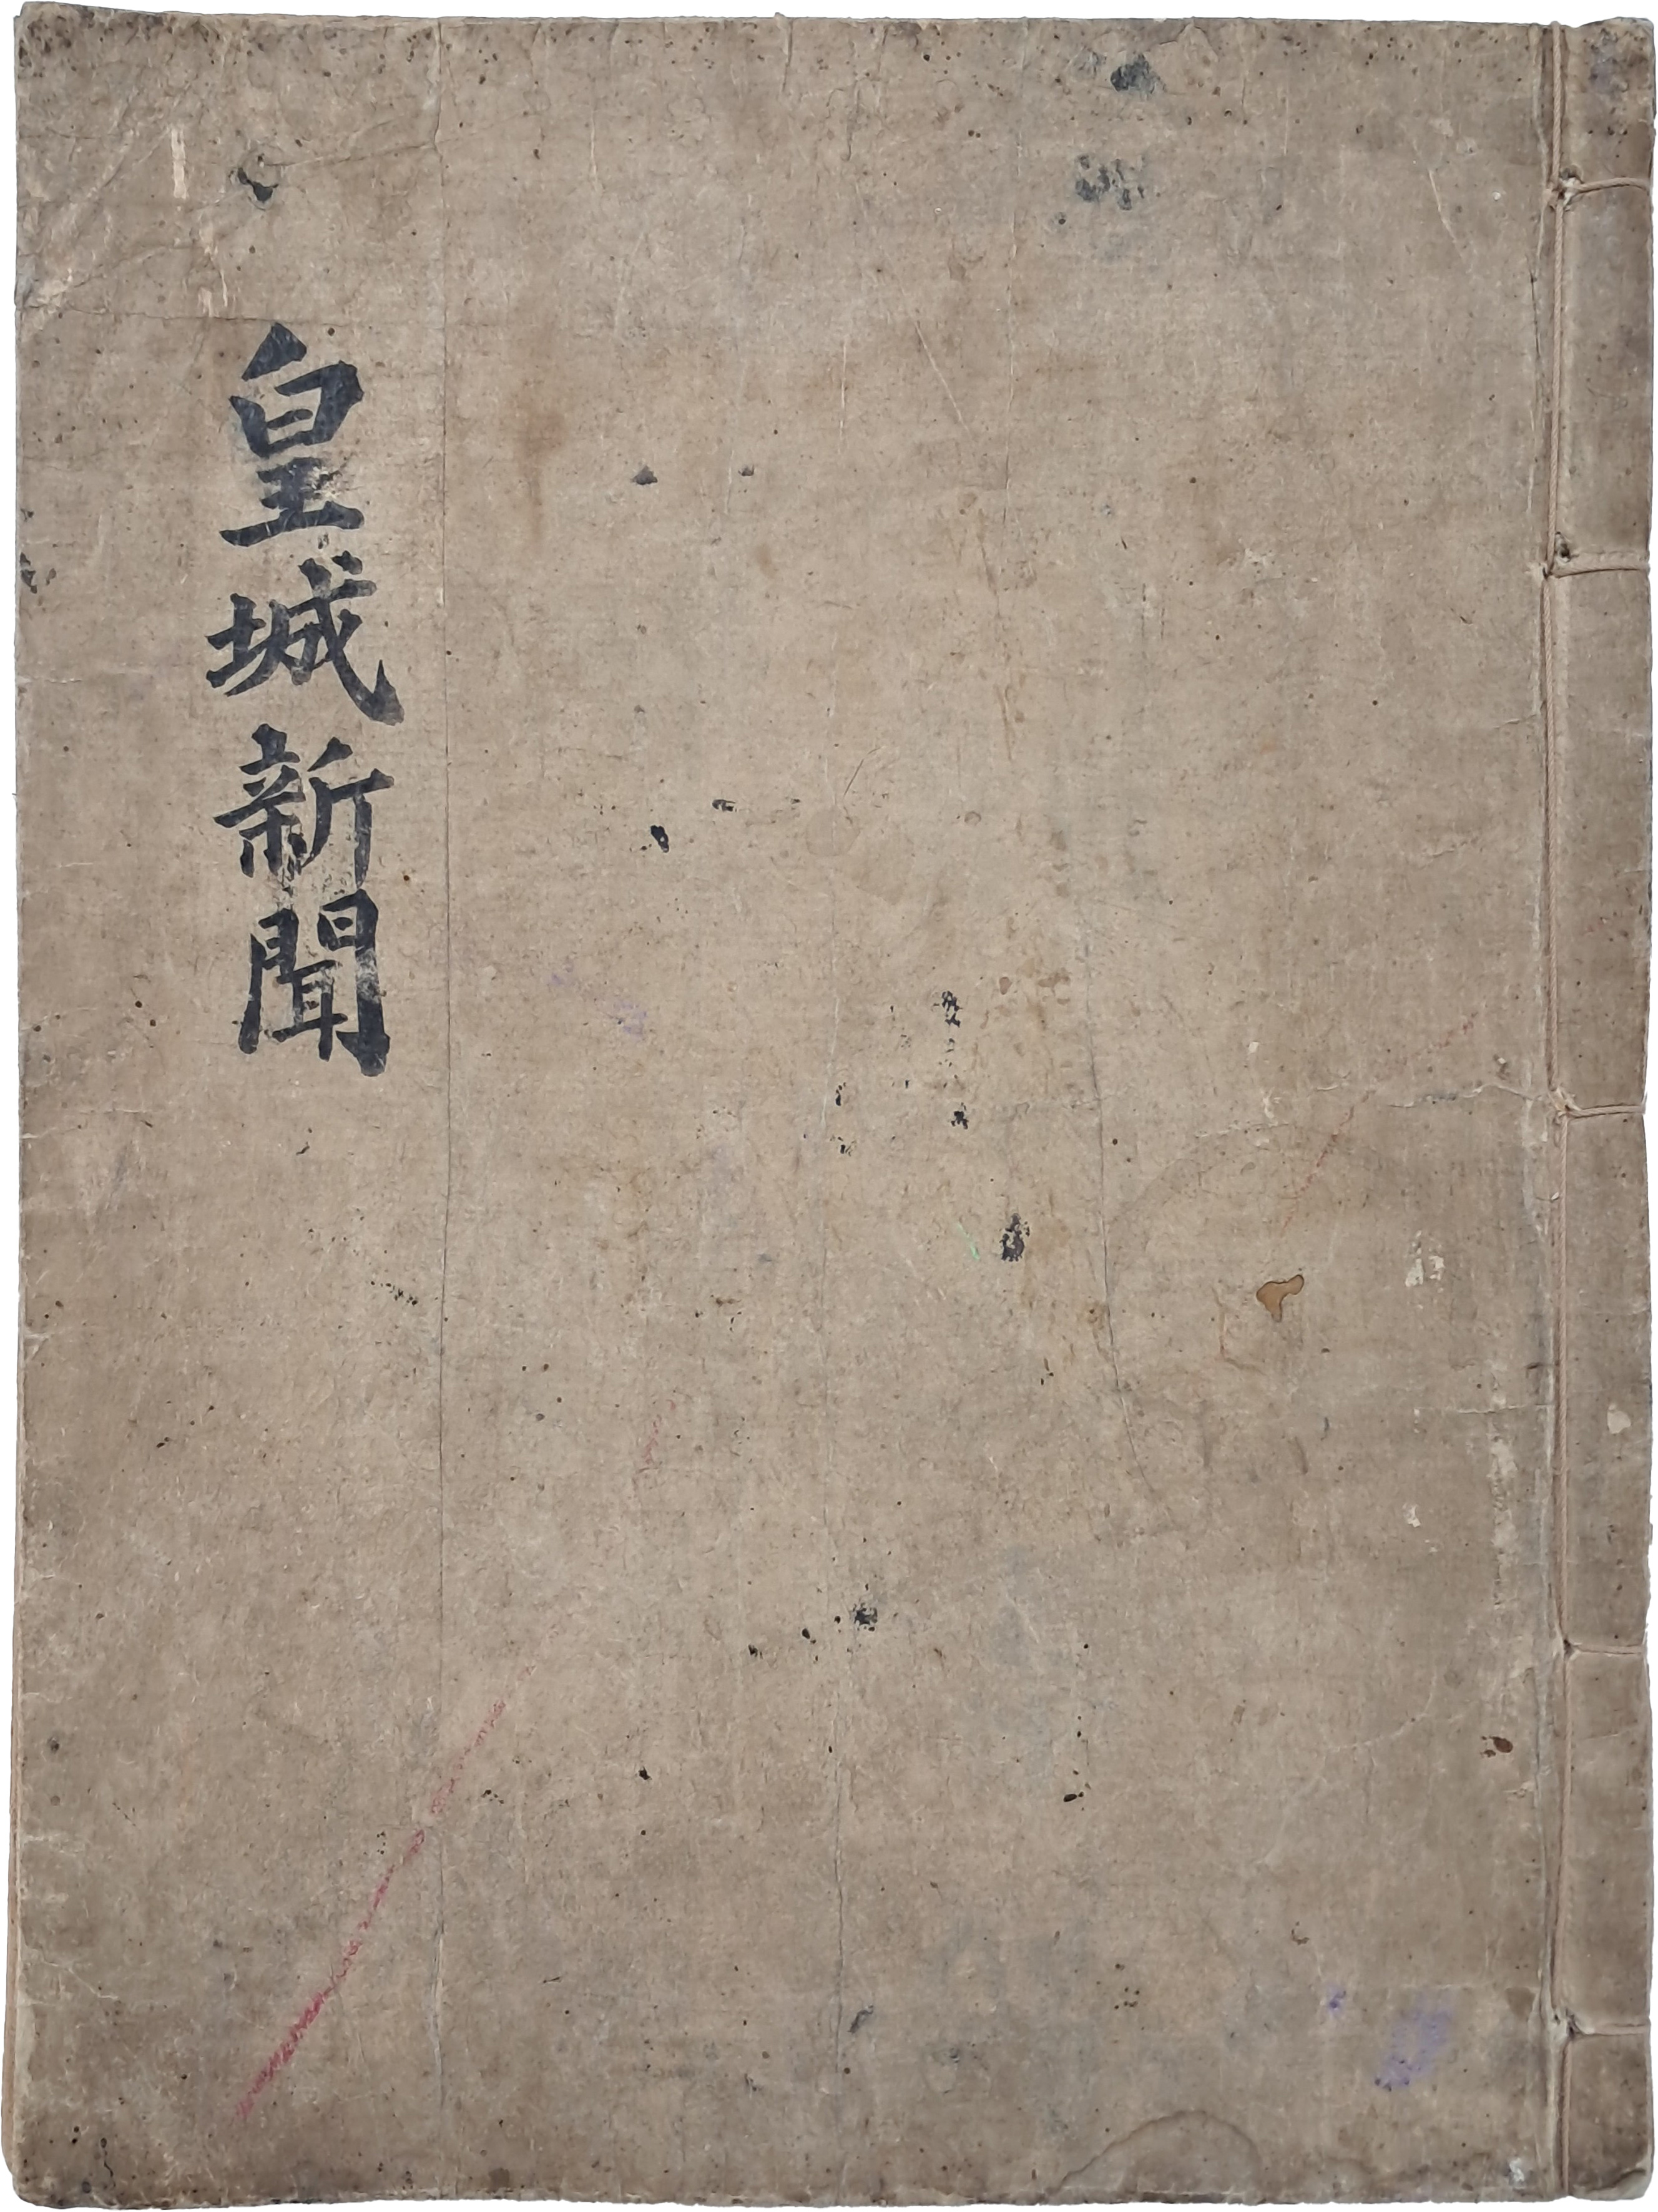 皇城新聞